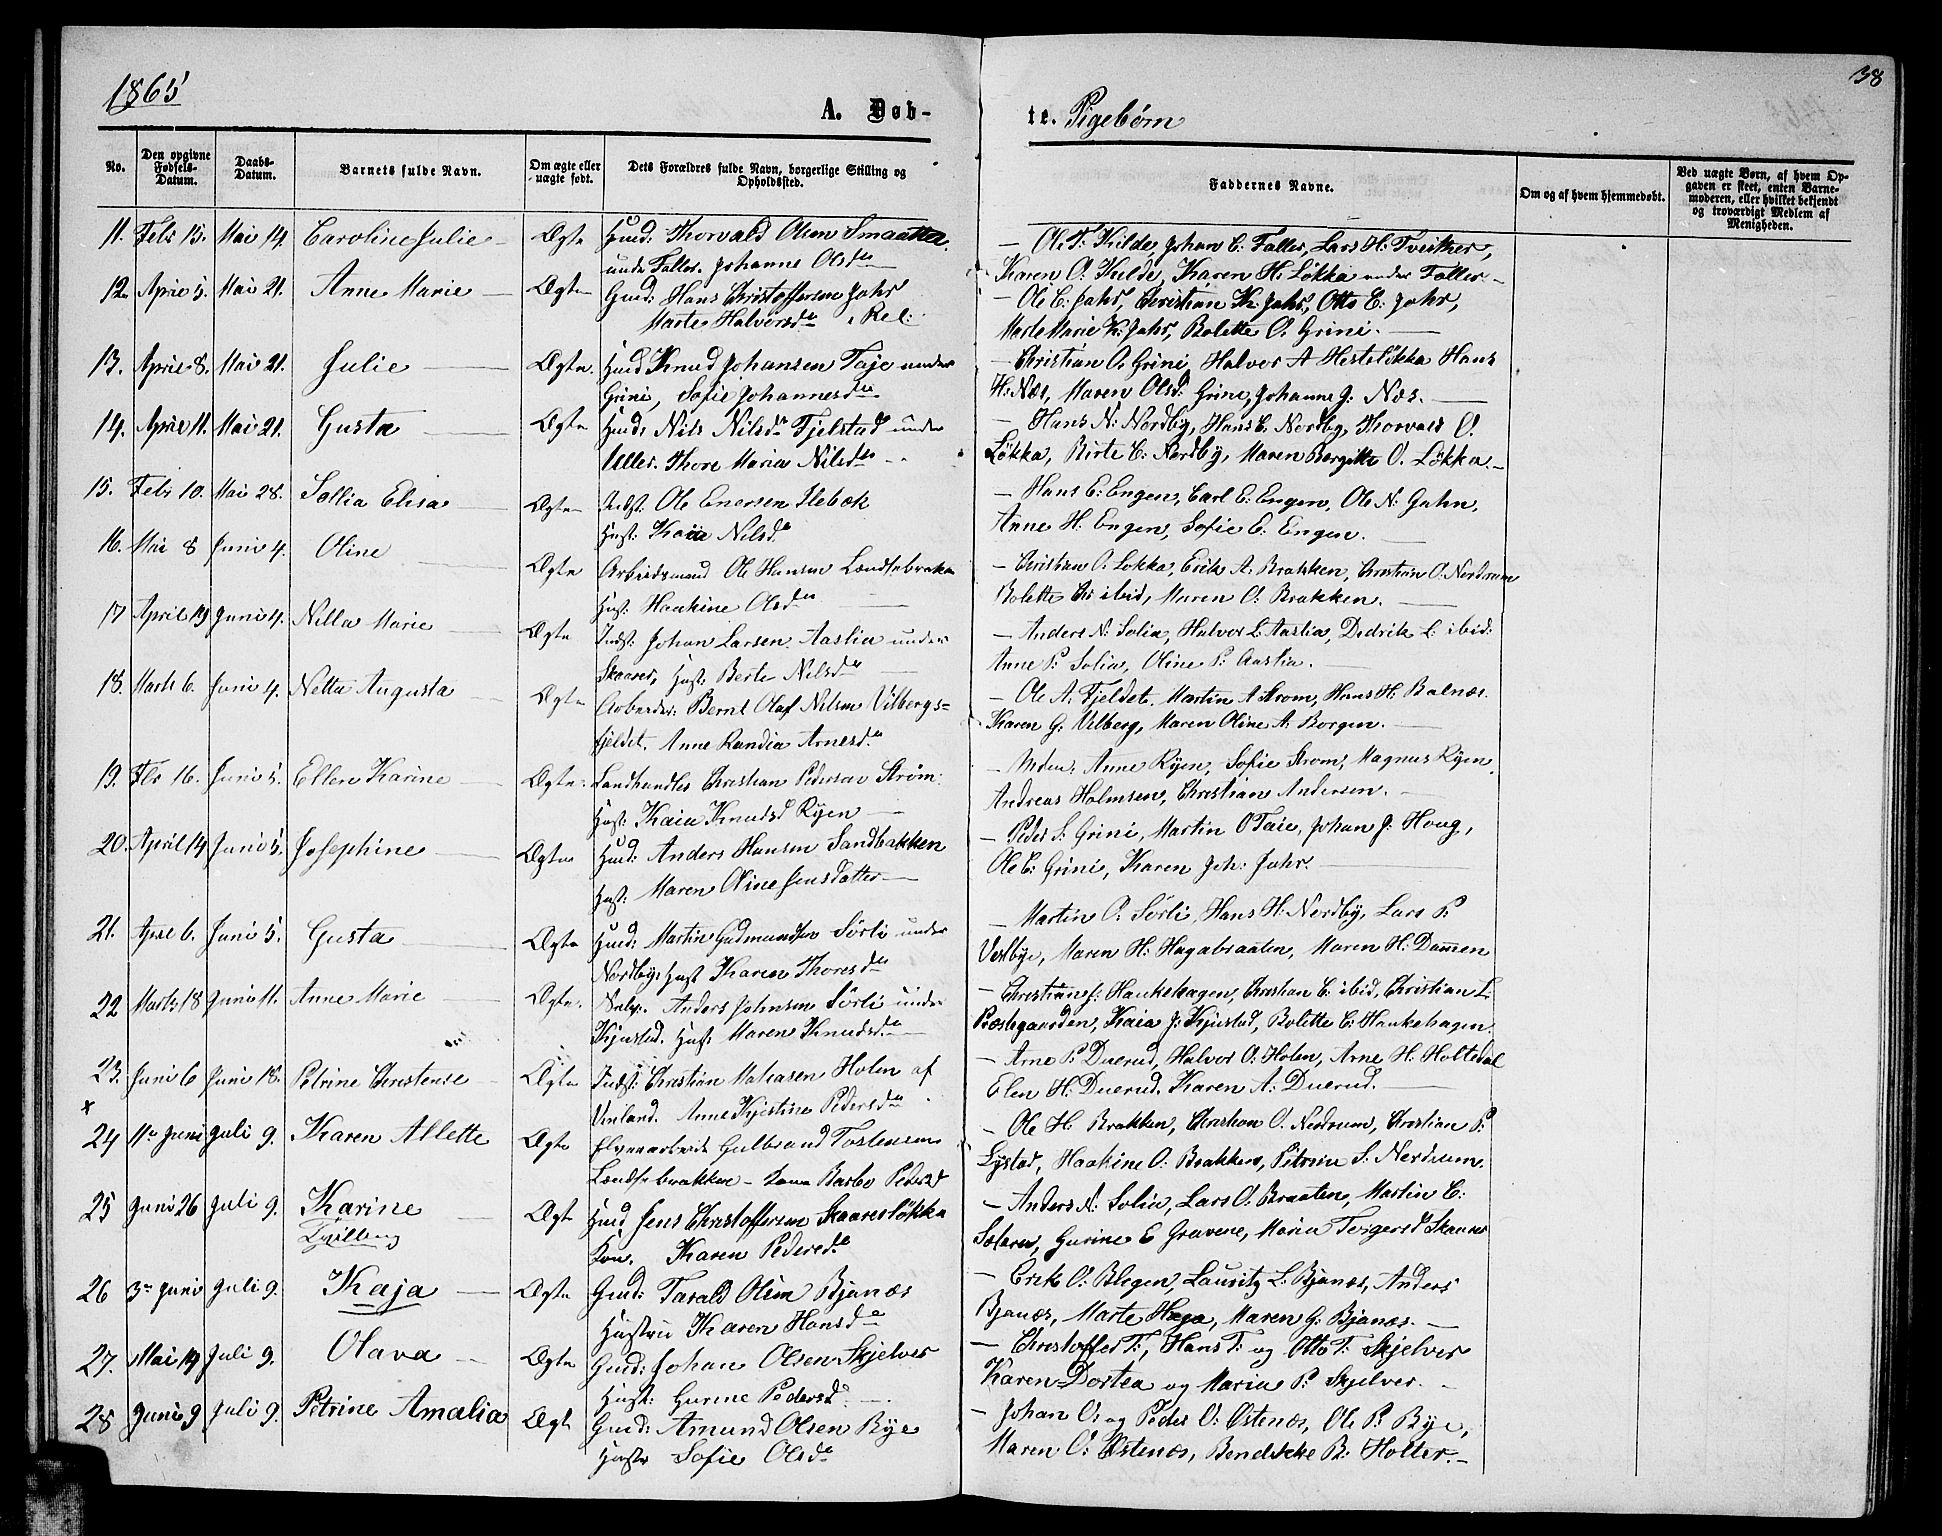 1865
38
A. Døb-
te. Pigebørn
No.
Den opgivne Fødsels-Datum.
Daabs-Datum.
Barnets fulde Navn.
Om ægte eller uægte født.
Dets Forældres fulde Navn, borgerlige Stilling og Opholdssted.
Faddernes Navne.
Om og af hvem hjemmedøbt.
Ved uægte Børn, af hvem Opgaven er skeet, enten Barnemoderen, eller hvilket bekjendt og troværdigt Medlem af Menigheden.
11. Febr 15. Mai 14. Caroline Julie Ægte Huusd: Thorvald Olsen
under Faller. Johanne Olsdtr
Ole T: Kilde, Johan C: Faller, Lars H: Tveither,
Karen O. Kulde, Karen H: Løkka under Faller
12. April 5. Mai 21. Anne Marie Ægte Gaud: Hans Christoffersen Jahr
Marte Halvorsdr
Ole C: Jahr, Christian K: Jahr, Otto E: Jahr,
Marte Marie K: Jahr, Bolette O. Grini.
13. April 8. Mai 21. Julie Ægte. Huusd Knud Johansen Taje under
Grini, Sofie Johannesdtr
Christian O. Grini, Halvor A Hesteløkka Hans
H: Næs, Maren Olsd. Grine, Johanne J: Næs.
14. April 11. Mai 21. Gusta Ægte Huusd. Nils Nilsen Fjelstad under
Uller. Thore Maria Nilsdtr
Hans N: Nordby, Hans C. Nordby, Thorvald O.
Løkka, Birte C: Nordby, Maren Bergitte O. Løkka.
15. Febr 10. Mai 28. Sollia Elisa Ægte Indst: Ole Enersen Ilebæk
Hust: Kaia Nilsdr
Hans C: Engen, Carl E: Engen, Ole N: Guhn,
Anne H: Engen, Sofie C. Engen.
16. Mai 8 Juni 4. Oline Ægte Arbeidsmand Ole Hansen
Hust: Haakine Olsdtr
Christian O. Løkka, Erik A. Brakken, Christian O. Nordrum
Bolette Chr ibid, Maren O: Brakken.
17 April 19 Juni 4. Nilla Marie Ægte Indst: Johan Larsen Aaslia under
Skaarer, Hust: Berte Nilsdr
Anders N: Solia, Halvor L. Aaslia, Dedrik L: ibid:
Anne P: Solia, Oline P: Aaslia.
18. Marts 6. Juni 4. Netta Augusta Ægte Arbeider: Bernt Olaf Nilsen Vilbergs=
fjeldet. Anne Randia Arnesdr
Ole A: Fjeldet. Martin A Strøm, Hans H: Balnæs.
Karen G: Vilberg, Maren Oline A: Borgen.
19. Fbr 16. Juni 5. Ellen Karine Ægte. Landhandler Christian Pedersen Strøm:
Hust: Kaia Knudsd Ryen
Anne Ryen, Sofie Strøm, Magnus Ryen
Andreas Holmsen, Christian Andersen.
20. April 14 Juni 5. Josephine Ægte Huusd: Anders Hansen Sandbakken
Hust: Maren Oline Jensdatter
Peder S: Grini, Martin O Taie, Johan J: Houg,
Ole C: Grini, Karen Joh: Jahr.
21. April 6. Juni 5. Gusta Ægte Huusd: Martin Gudmundsen Sørli under
Nordby, Hust Karen Thoresdtr
Martin O. Sørli, Hans H: Nordby, Lars P.
Vestbye, Maren H: Hagabraaten, Maren H: Dammen
22 Marts 18 Juni 11. Anne Marie Ægte. Anders Johnsen Sørli under
Kjustad. Hust Maren Knudsdr
Christian J: Haukehagen, Christian C: ibid, Christian L.
Præstegaarden, Kaia J: Kjustad, Bolette C: Haukehagen.
23. Juni 6 Juni 18. Petrine Christense Ægte Indst: Christian Matiasen Holen af
Vinland. Anne Kjestine Pedersdtr
Arne P. Duerud, Halvor O: Holen, Arne H. Holtedal
Elen H: Duerud. Karen A: Duerud.
x
24 11te Juni Juli 9. Karen Allette Ægte Elvearbeider Gulbrand Tostensen
Lændsebrakken - Kone Barbo Pedersd
Ole H: Brakken, Christian O. Nordrum, Christian P:
Lystad, Haakine O: Brakken, Petrine S: Nordrum.
25 Juni 26 Juli 9. Karine Ægte Huusd Jens Christoffersen Skaaresløkka
Tvilling
Kone, Karen Pedersdr
Anders N: Solia, Lars O: Braaten, Martin C:
Gurine E Gravene, Maria Torgersd Skaarer
26 3de Juni Juli 9. Kaja Ægte Gaud: Tarald Olsen Bjanæs
Hustrue Karen Hansdr
Erik O: Blegen, Lauritz L: Bjanæs, Anders
Bjanæs, Marte Haga, Maren G: Bjanæs.
27. Mai 19 Juli 9. Olava Ægte Gaud: Johan Olsen Skjelver
Hust: Gurine Pedersdr
Christoffer T:, Hans T: og Otto T: Skjelver
Karen Dortea og Maria P: Skjelver.
28 Juni 9 Juli 9. Petrine Amalia Ægte Gaud: Amund Olsen Bye
Hustr Sofie Olsdr
Johan O: og Peder O: Østenæs, Ole P. Bye,
Maren O: Østenæs, Bendikke B: Holter.